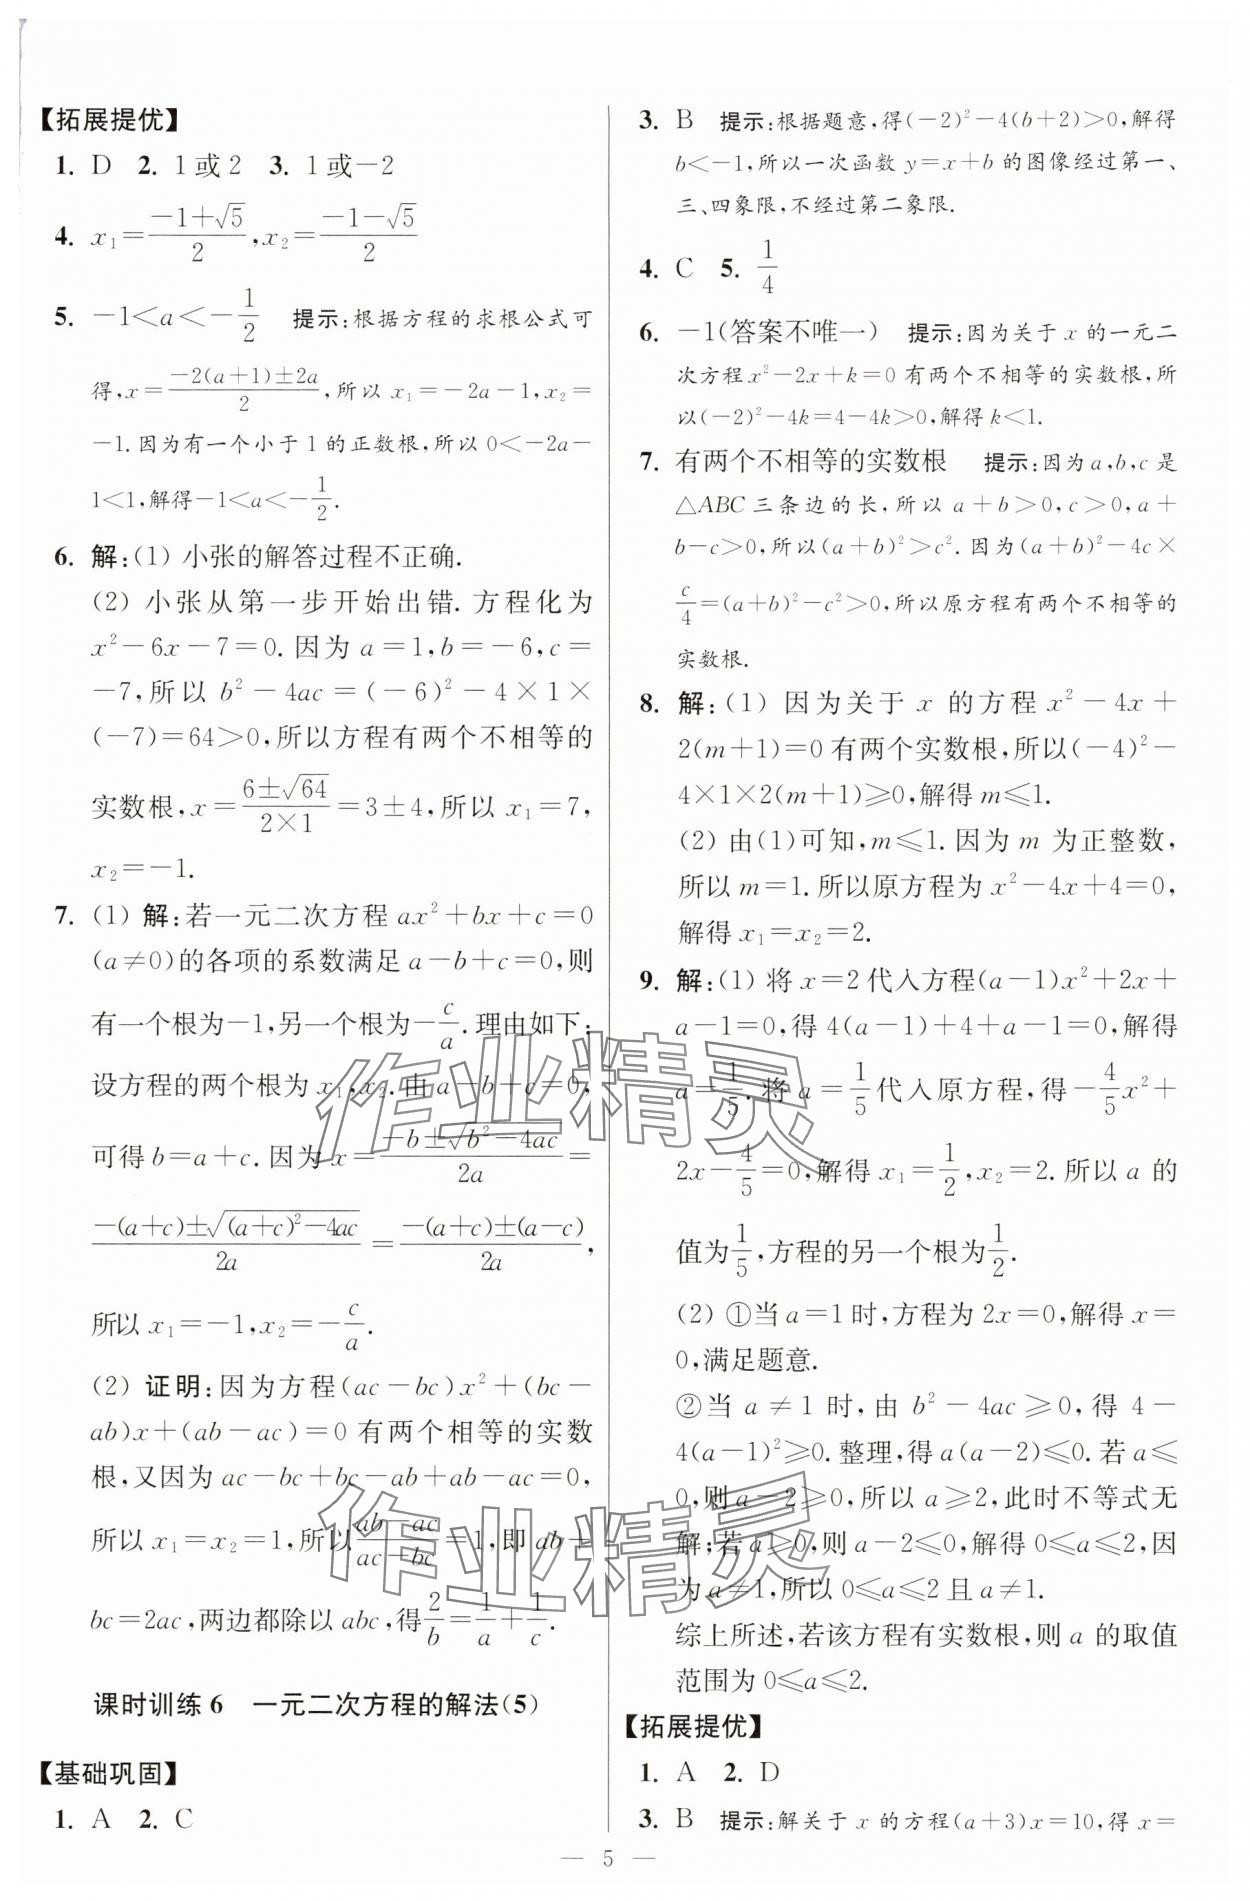 【拓展提优】
1. D  2. 1或2  3. 1或－2
4. x₁=(-1+√5)/2, x₂=(-1-√5)/2
5. -1<a<-1/2  提示:根据方程的求根公式可
得,x=(-2(a+1)±2a)/2,所以 x₁=-2a-1,x₂=
-1.因为有一个小于1的正数根,所以0<-2a-
1<1,解得-1<a<-1/2.
6. 解:(1) 小张的解答过程不正确.
(2) 小张从第一步开始出错. 方程化为
x²-6x-7=0. 因为 a=1,b=-6,c=
-7,所以 b²-4ac=(-6)²-4×1×
(-7)=64>0,所以方程有两个不相等的
实数根,x=(6±√64)/(2×1)=3±4,所以 x₁=7,
x₂=-1.
7. (1) 解:若一元二次方程 ax²+bx+c=0
(a≠0)的各项的系数满足 a-b+c=0,则
有一个根为-1,另一个根为-c/a.理由如下:
设方程的两个根为 x₁,x₂.由a-b+c=0,
可得 b=a+c. 因为 x=(-b±√(b²-4ac))/2a=
(-(a+c)±√((a+c)²-4ac))/2a=(-(a+c)±(a-c))/2a,
所以 x₁=-1,x₂=-c/a.
(2) 证明:因为方程(ac-bc)x²+(bc-
ab)x+(ab-ac)=0 有两个相等的实数
根,又因为 ac-bc+bc-ab+ab-ac=0,
所以 x₁=x₂=1,所以(ab-ac)/(ac-bc)=1,即 ab+
bc=2ac,两边都除以 abc,得2/b=1/a+1/c.
课时训练6 一元二次方程的解法(5)
【基础巩固】
1. A  2. C
3. B  提示:根据题意,得(-2)²-4(b+2)>0,解得
b<-1,所以一次函数 y=x+b 的图像经过第一、
三、四象限,不经过第二象限.
4. C  5. 1/4
6. -1(答案不唯一)  提示:因为关于 x 的一元二
次方程x²-2x+k=0有两个不相等的实数根,所
以(-2)²-4k=4-4k>0,解得k<1.
7. 有两个不相等的实数根  提示:因为a,b,c是
△ABC三条边的长,所以 a+b>0,c>0,a+
b-c>0,所以(a+b)²>c². 因为(a+b)²-4c×
c/4=(a+b)²-c²>0,所以原方程有两个不相等的
实数根.
8. 解:(1) 因为关于 x 的方程 x²-4x+
2(m+1)=0 有两个实数根,所以(-4)²-
4×1×2(m+1)≥0,解得 m≤1.
(2) 由(1)可知,m≤1. 因为 m 为正整数,
所以 m=1. 所以原方程为 x²-4x+4=0,
解得 x₁=x₂=2.
9. 解:(1) 将 x=2代入方程(a-1)x²+2x+
a-1=0,得 4(a-1)+4+a-1=0,解得
a=1/5.将 a=1/5代入原方程,得-4/5x²+
2x-4/5=0,解得 x₁=1/2,x₂=2. 所以 a 的
值为1/5,方程的另一个根为1/2.
(2) ①当 a=1 时,方程为 2x=0,解得 x=
0,满足题意.
②当 a≠1 时,由 b²-4ac≥0,得 4-
4(a-1)²≥0.整理,得a(a-2)≤0.若 a≤
0,则 a-2≥0,所以 a≥2,此时不等式无
解;若 a≥0,则 a-2≤0,解得 0≤a≤2,因
为 a≠1,所以 0≤a≤2 且 a≠1.
综上所述,若该方程有实数根,则 a 的取值
范围为 0≤a≤2.
【拓展提优】
1. A  2. D
3. B  提示:解关于 x 的方程(a+3)x=10,得 x=
— 5 —
作业精灵
作业精灵